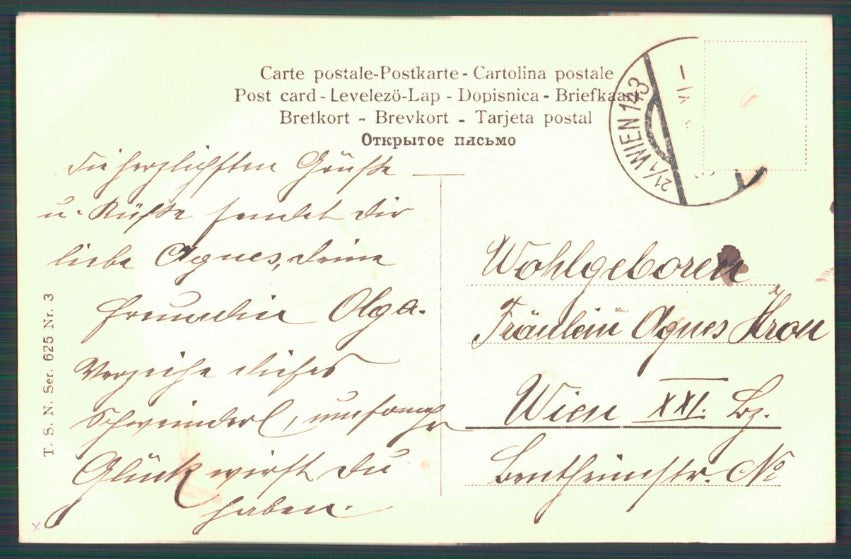 Carte postale-Postkarte - Cartolina postale
Post card - Levelező-Lap - Dopisnica - Briefkaart
Bretkort - Brevkort - Tarjeta postal
Открытое письмо
WIEN 143
21/1
Die herzlichsten Grüße
u. Küße sendet dir
liebe Agnes, deine
Freundin Olga.
Verzeihe dieses
Schweinderl, umsomehr
Glück wirst du
haben.
Wohlgeboren
Fräulein Agnes Kron
Wien XXI. Bz.
Bentheimstr. No
T. S. N. Ser. 625 Nr. 3